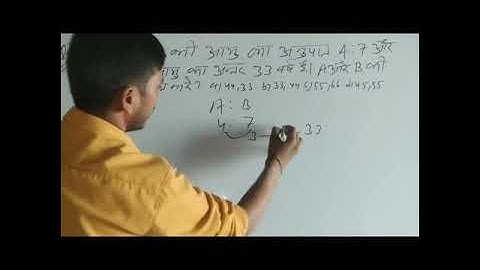 की आयु का अनुपात 4:7 और
आयु का अन्तर 33 वर्ष है। A और B की
44,33 33,44 55,66 45,55
A : B
4 : 7
3 33